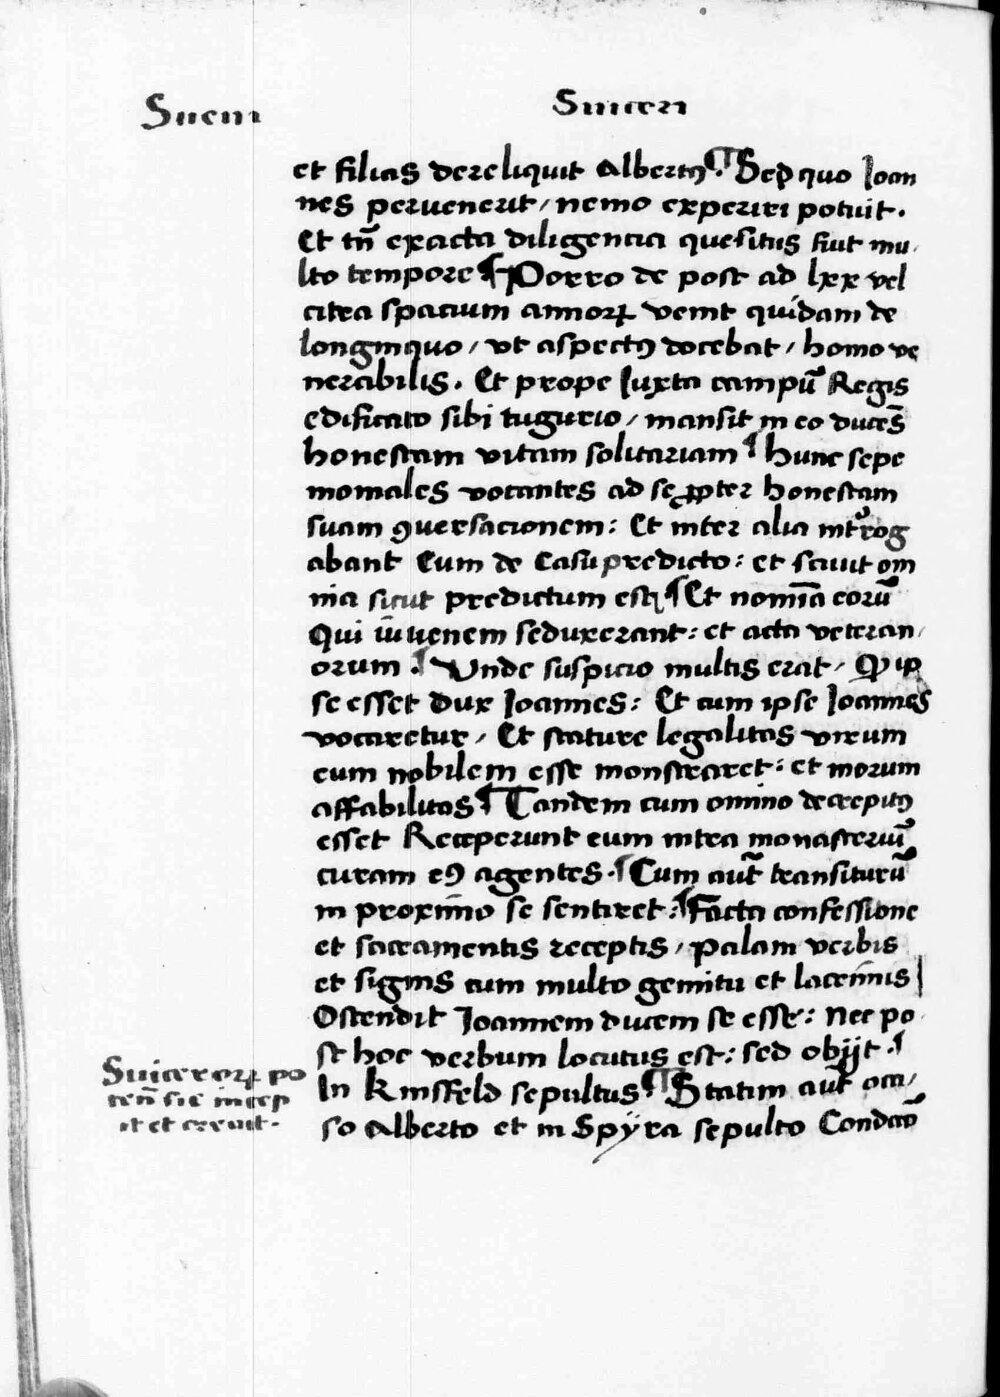 Sueni
Suiceri
et filias dereliquit Albertꝰ. ¶ Sed quo Joan
nes peruenerit / nemo experiri potuit.
Et tn̄ exacta diligencia quesitus fuit mu-
lto tempore ¶ Porro de post ad lxx vel
citra spacium annoꝝ venit quidam de
longinquo / vt aspectꝰ docebat / homo ve
nerabilis. Et prope Juxta campū Regis
edificato sibi tugurio / mansit in eo ducēs
honestam vitam solitariam ¶ hunc sepe
moniales vocantes ad se ꝓpter honestam
suam ꝯuersacionem: Et inter alia int̉rog
abant Eum de Casu predicto: et sciuit om
nia sicut predictum est ¶ Et nomīa eorū
Qui iūuenem seduxerant: et acta veteran-
orum. ¶ Vnde suspicio multis erat / Ꝙ ip
se esset dux Joannes: Et cum ipse Joannes
vocaretur / Et stature legalitas virum
eum nobilem esse monstraret: et morum
affabilitas ¶ Tandem cum omino decrepitꝰ
esset Receperunt eum intra monasteriū
curam eꝰ agentes. ¶ Cum aut̄ transiturū
in proximo se sentiret: ¶ Facta confessione
et sacramentis receptis / palam verbis
et signis cum multo gemitu et lacrimis
Ostendit Joannem ducem se esse: nec po-
st hoc verbum locutus est: sed obijt. ¶
In Kinsfeld sepultus ¶ Statim aut̄ occi-
so Alberto et in Spÿra sepulto Condc̄o
Suiceroꝝ po
ten̄ sic incep
it et creuit.